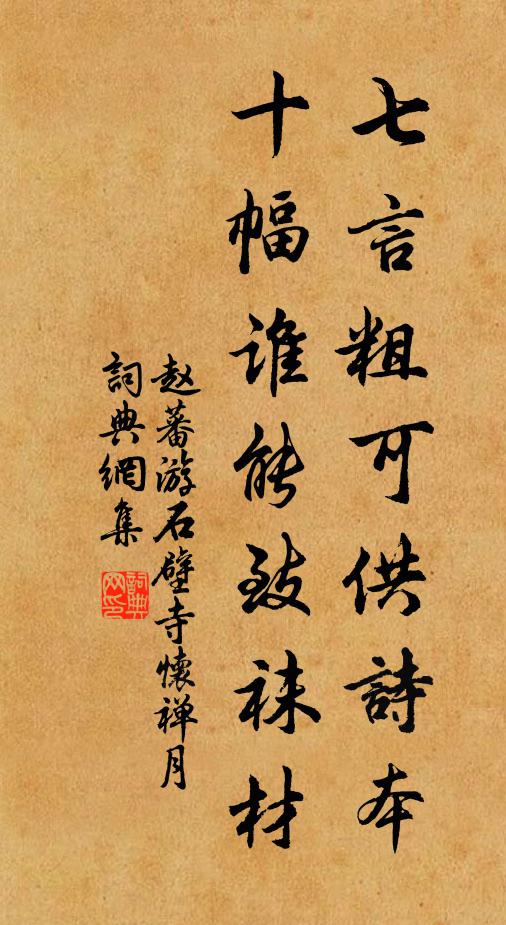 七言粗可供詩本
十幅谁能致袜材
赵蕃游石壁寺懷禅月
詞典網集
詞典网印